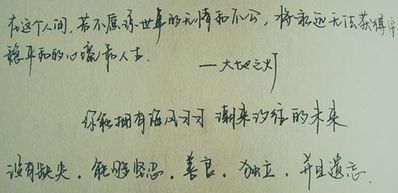 在这个人间,若不愿谅世事的无情和不公,将永远无法获得安
稳平和的心境和人生.
——大地之灯
你能拥有海风习习 潮来汐往的未来
没有缺失.能够坚忍.善良.独立.并且遗忘.